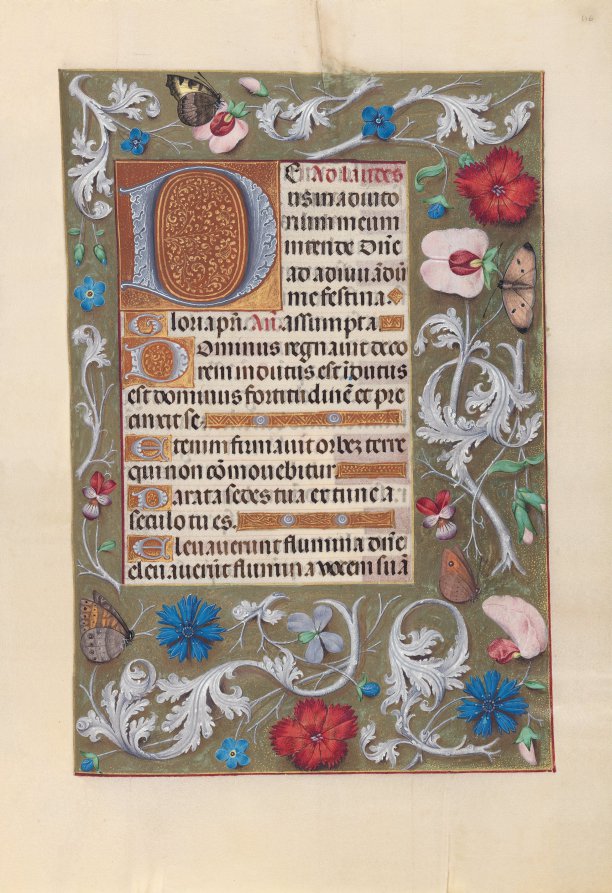 DE Ad laudes
us in adiuto
rium meum
intende Dn̄e
ad adiuuādū
me festina.
Gloria pr̄i. An̄. assumpta
Dominus regnauit deco
rem indutus est īdutus
est dominus fortitudinē et pre
cinxit se.
Etenim firmauit orbez terre
qui non cōmouebitur.
Parata sedes tua ex tunc a
seculo tu es.
Eleuauerunt flumina dn̄e
eleuauerūt flumina vocem suā